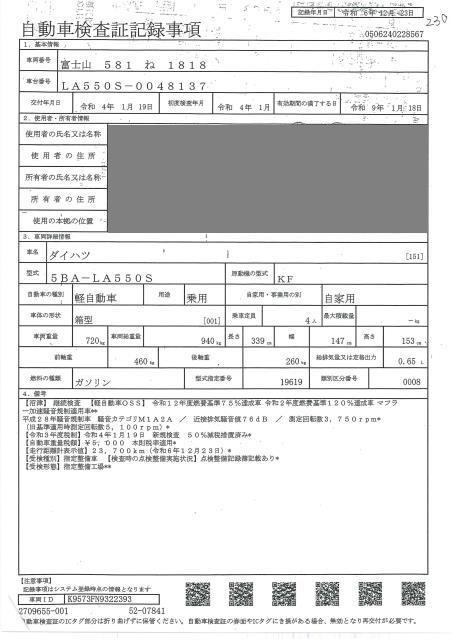 230
記録年月日 令和 6年12月23日
自動車検査証記録事項
0506240228567
1. 基本情報
車両番号 富士山 581 ね 1818
車台番号 LA550S-0048137
交付年月日 令和 4年 1月 19日 初度検査年月 令和 4年 1月 有効期間の満了する日 令和 9年 1月 18日
2. 使用者・所有者情報
使用者の氏名又は名称
使用者の住所
所有者の氏名又は名称
所有者の住所
使用の本拠の位置
3. 車両詳細情報
車名 ダイハツ [151]
型式 5BA-LA550S 原動機の型式 KF
自動車の種別 軽自動車 用途 乗用 自家用・事業用の別 自家用
車体の形状 箱型 [001] 乗車定員 4人 最大積載量 -kg
車両重量 720kg 車両総重量 940kg 長さ 339cm 幅 147cm 高さ 153cm
前軸重 460kg 後軸重 260kg 総排気量又は定格出力 0.65 L
燃料の種類 ガソリン 型式指定番号 19619 類別区分番号 0008
4. 備考
【沼津】 継続検査 【軽自動車OSS】 令和12年度燃費基準75%達成車 令和2年度燃費基準120%達成車 マフラ
ー加速騒音規制適用車**
平成28年騒音規制車 騒音カテゴリM1A2A / 近接排気騒音値76dB / 測定回転数3,750rpm*
(旧基準適用時測定回転数5,100rpm)*
【令和3年度税制】令和4年1月19日 新規検査 50%減税措置済み*
【自動車重量税額】¥5,000 本則税率適用*
【走行距離計表示値】23,700km(令和6年12月23日)*
【受検種別】指定整備車 【検査時の点検整備実施状況】点検整備記録簿記載あり*
【受検形態】指定整備工場**
【注意事項】
記録事項はシステム登録時点の情報となります
車両ID K9573FN9322393
2709655-001 52-07841
自動車検査証のICタグ部分は折り曲げずに保管ください。自動車検査証の券面やICタグにき損がある場合、無効となり再交付が必要です。